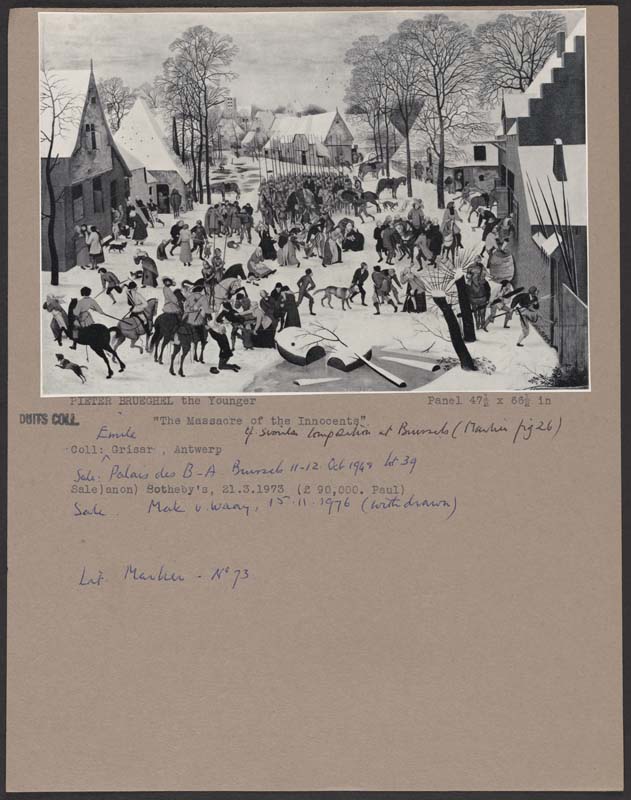 PIETER BRUEGHEL the Younger Panel 47½ x 66½ in
DUITS COLL.
"The Massacre of the Innocents".
Cf similar composition at Brussels (Marlier fig 26)
Emile
Coll: Grisar, Antwerp
Sale: Palais des B-A. Brussels 11-12 Oct 1948 lot 39
Sale)anon) Sotheby's, 21.3.1973 (£ 90,000. Paul)
Sale Mak v. Waay, 15.11.1976 (withdrawn)
Lit. Marlier - No 73